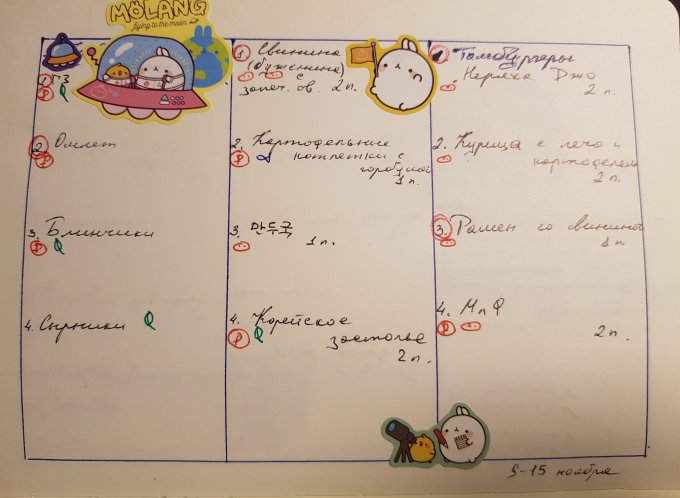 MOLANG
flying to the moon
1. ГЗ
Р Q
2. Омлет
Р
3. Блинчики
Р Q
4. Сырники Q
1. Свинина
(буженина)
с
запеч. ов. 2 п.
2. Картофельные
котлетки с
горбушей
Р
1 п.
3. 만두국
1 п.
4. Корейское
Р Q застолье
2 п.
1. Гамбургеры
Неряха Джо
2 п.
2. Курица с лечо и
картофелем
2 п.
3. Рамен со свининой
1 п.
4. МпФ
Р
2 п.
9-15 ноября